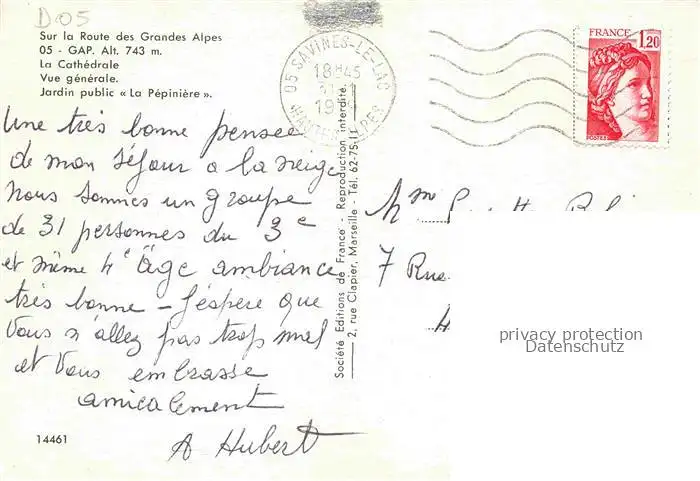 D05
Sur la Route des Grandes Alpes
05 - GAP. Alt. 743 m.
La Cathédrale
Vue générale.
Jardin public « La Pépinière ».
Une très bonne pensée
de mon séjour a la neige
nous sommes un groupe
de 31 personnes du 3e
et même 4e âge ambiance
très bonne - J'espère que
Vous n'allez pas trop mal
et Vous embrasse
amicalement
A Hubert
14461
05 SAVINES-LE-LAC
18H45
19
HAUTES ALPES
Société Editions de France - Reproduction interdite.
2, rue Clapier, Marseille - Tél. 62-75-11
FRANCE
1,20
POSTES
Mme
7 Rue
4
privacy protection
Datenschutz